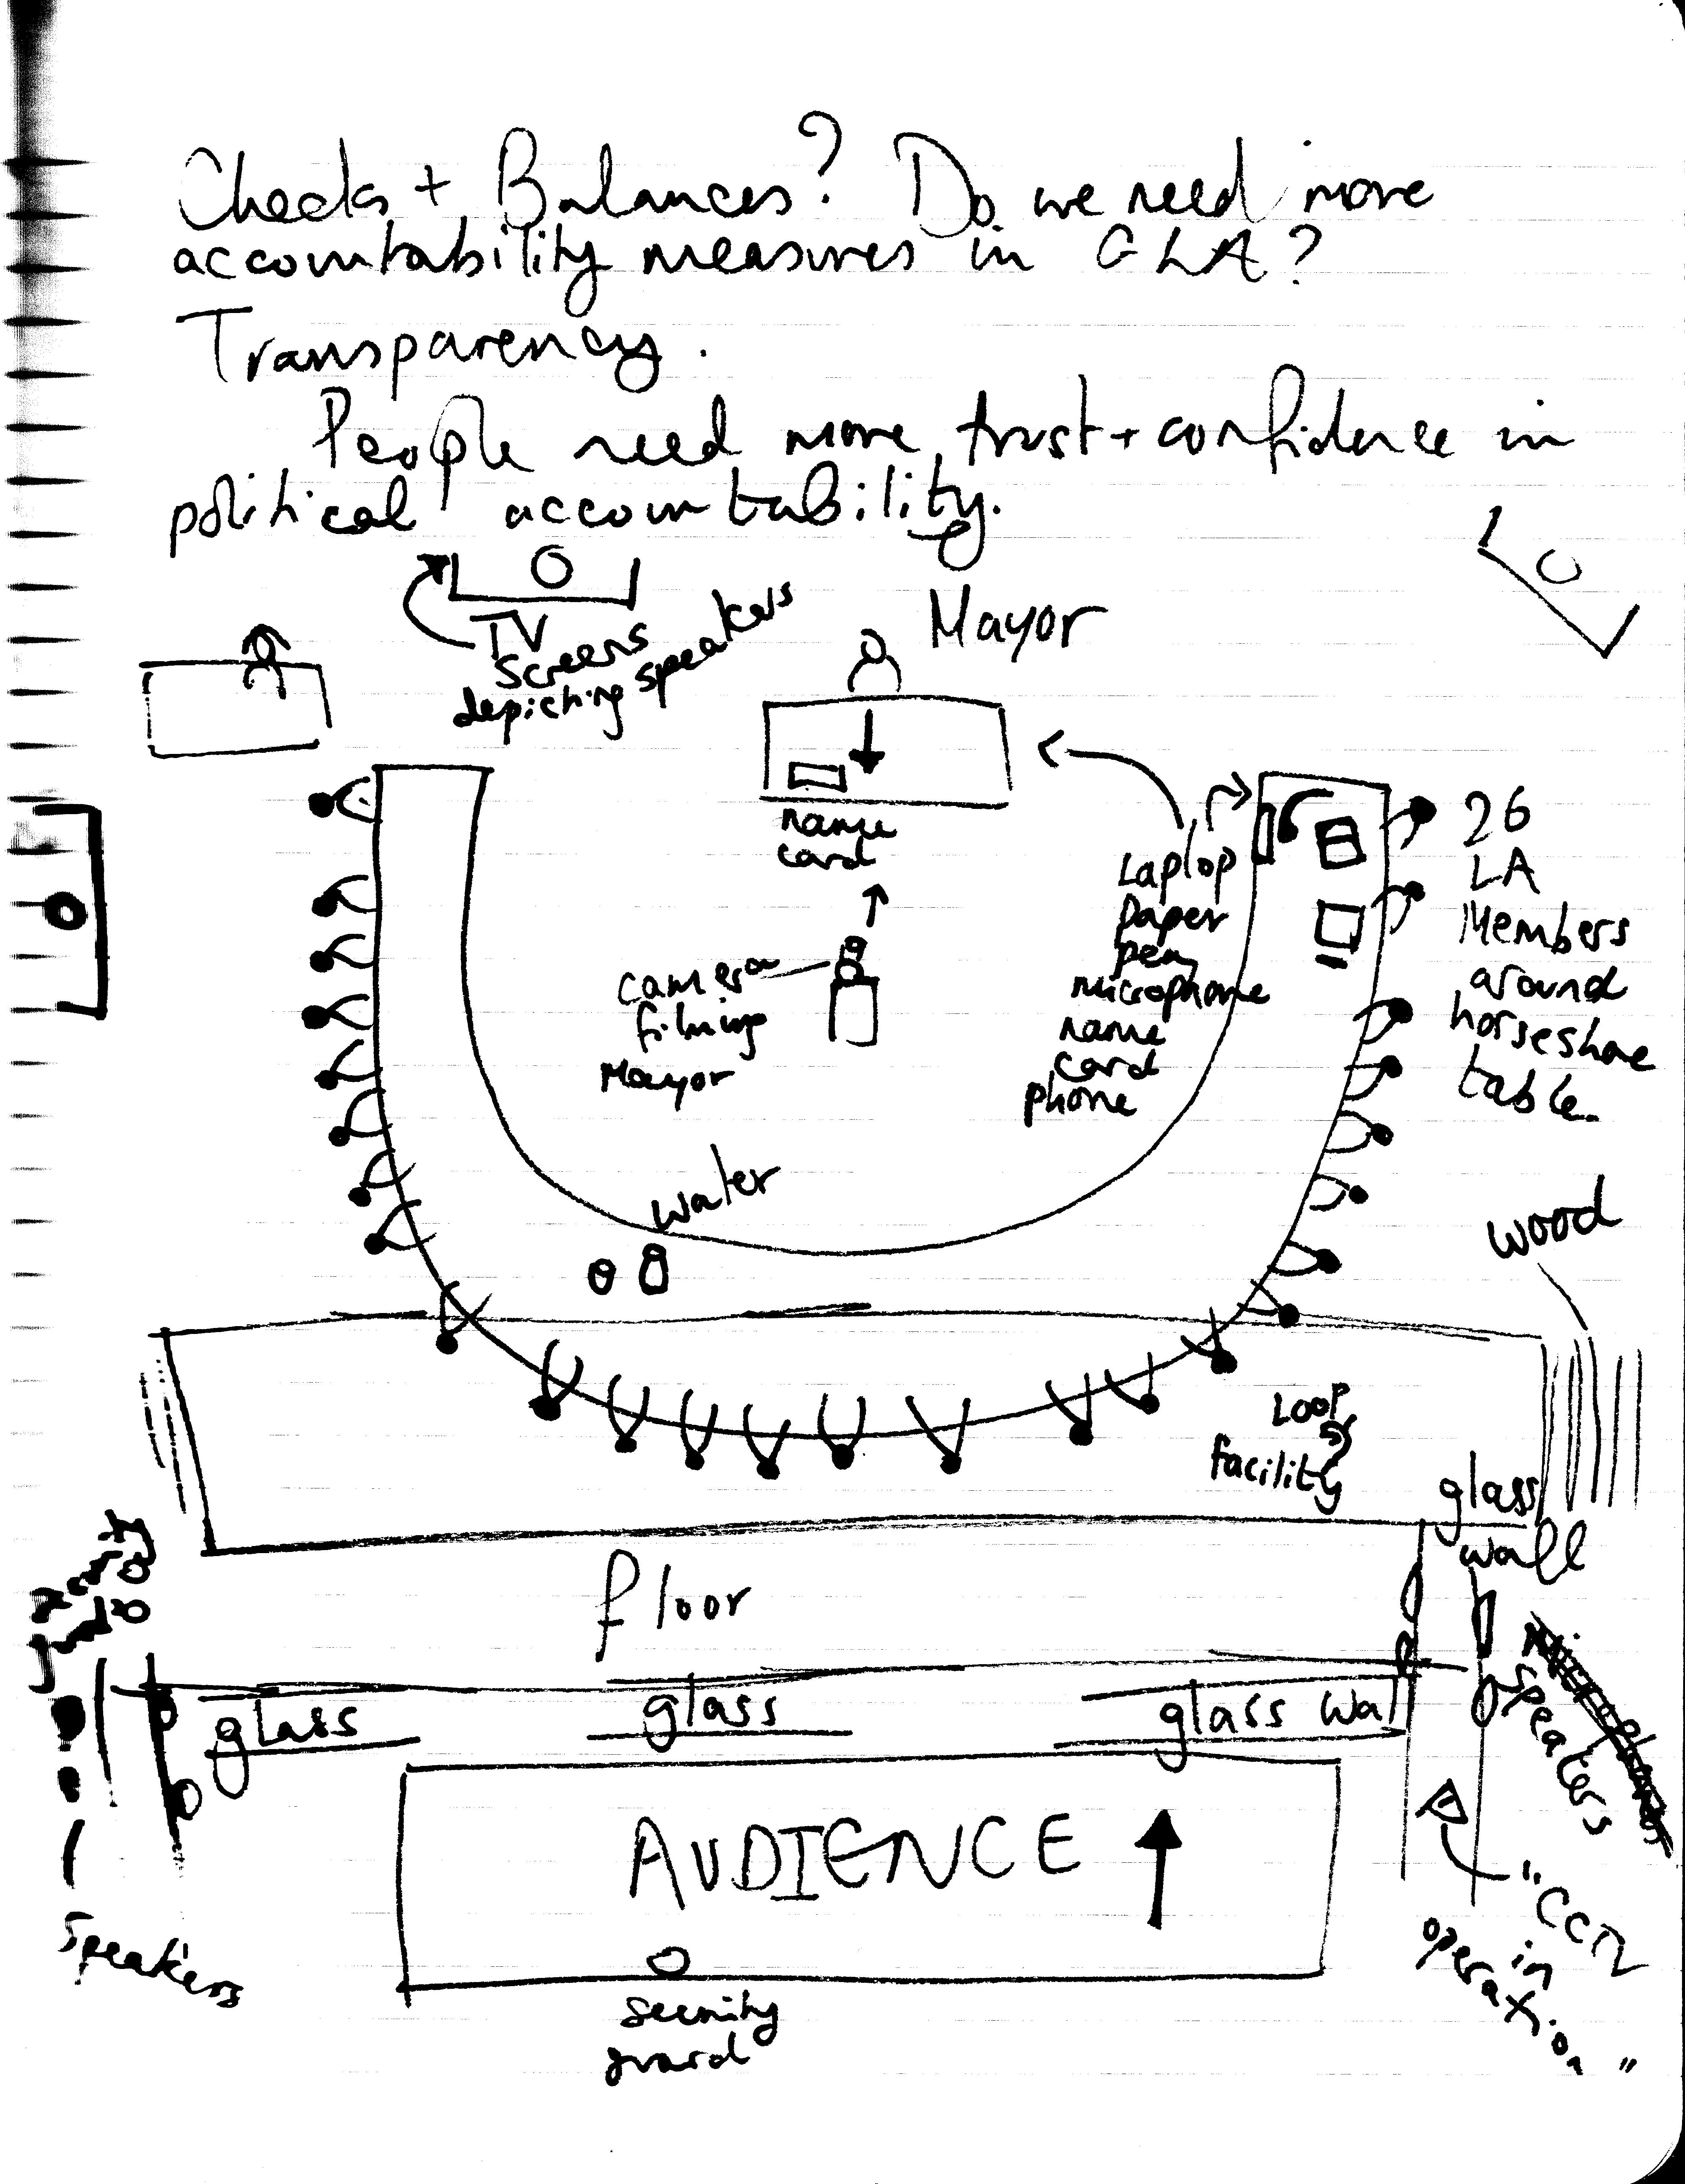 Checks + Balances? Do we need more
accountability measures in GLA?
Transparency.
People need more trust + confidence in
political accountability.
TV
Screens
depicting speakers
Mayor
name
card
Laptop
paper
pen
microphone
name
card
phone
26
LA
Members
around
horseshoe
table.
camera
filming
Mayor
water
wood
Loop
facility
glass
wall
floor
glass
glass
glass wall
speakers
AUDIENCE
"CCTV
in
operation"
speakers
security
guard